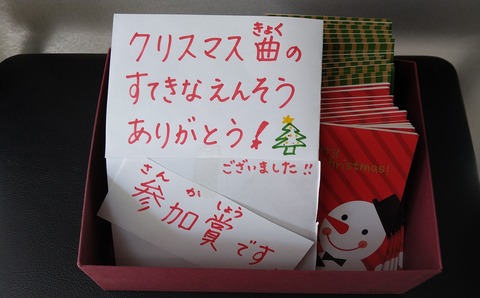 きょく
クリスマス曲の
すてきなえんそう
ありがとう!
ございました!!
さんかしょう
参加賞です
Christmas!